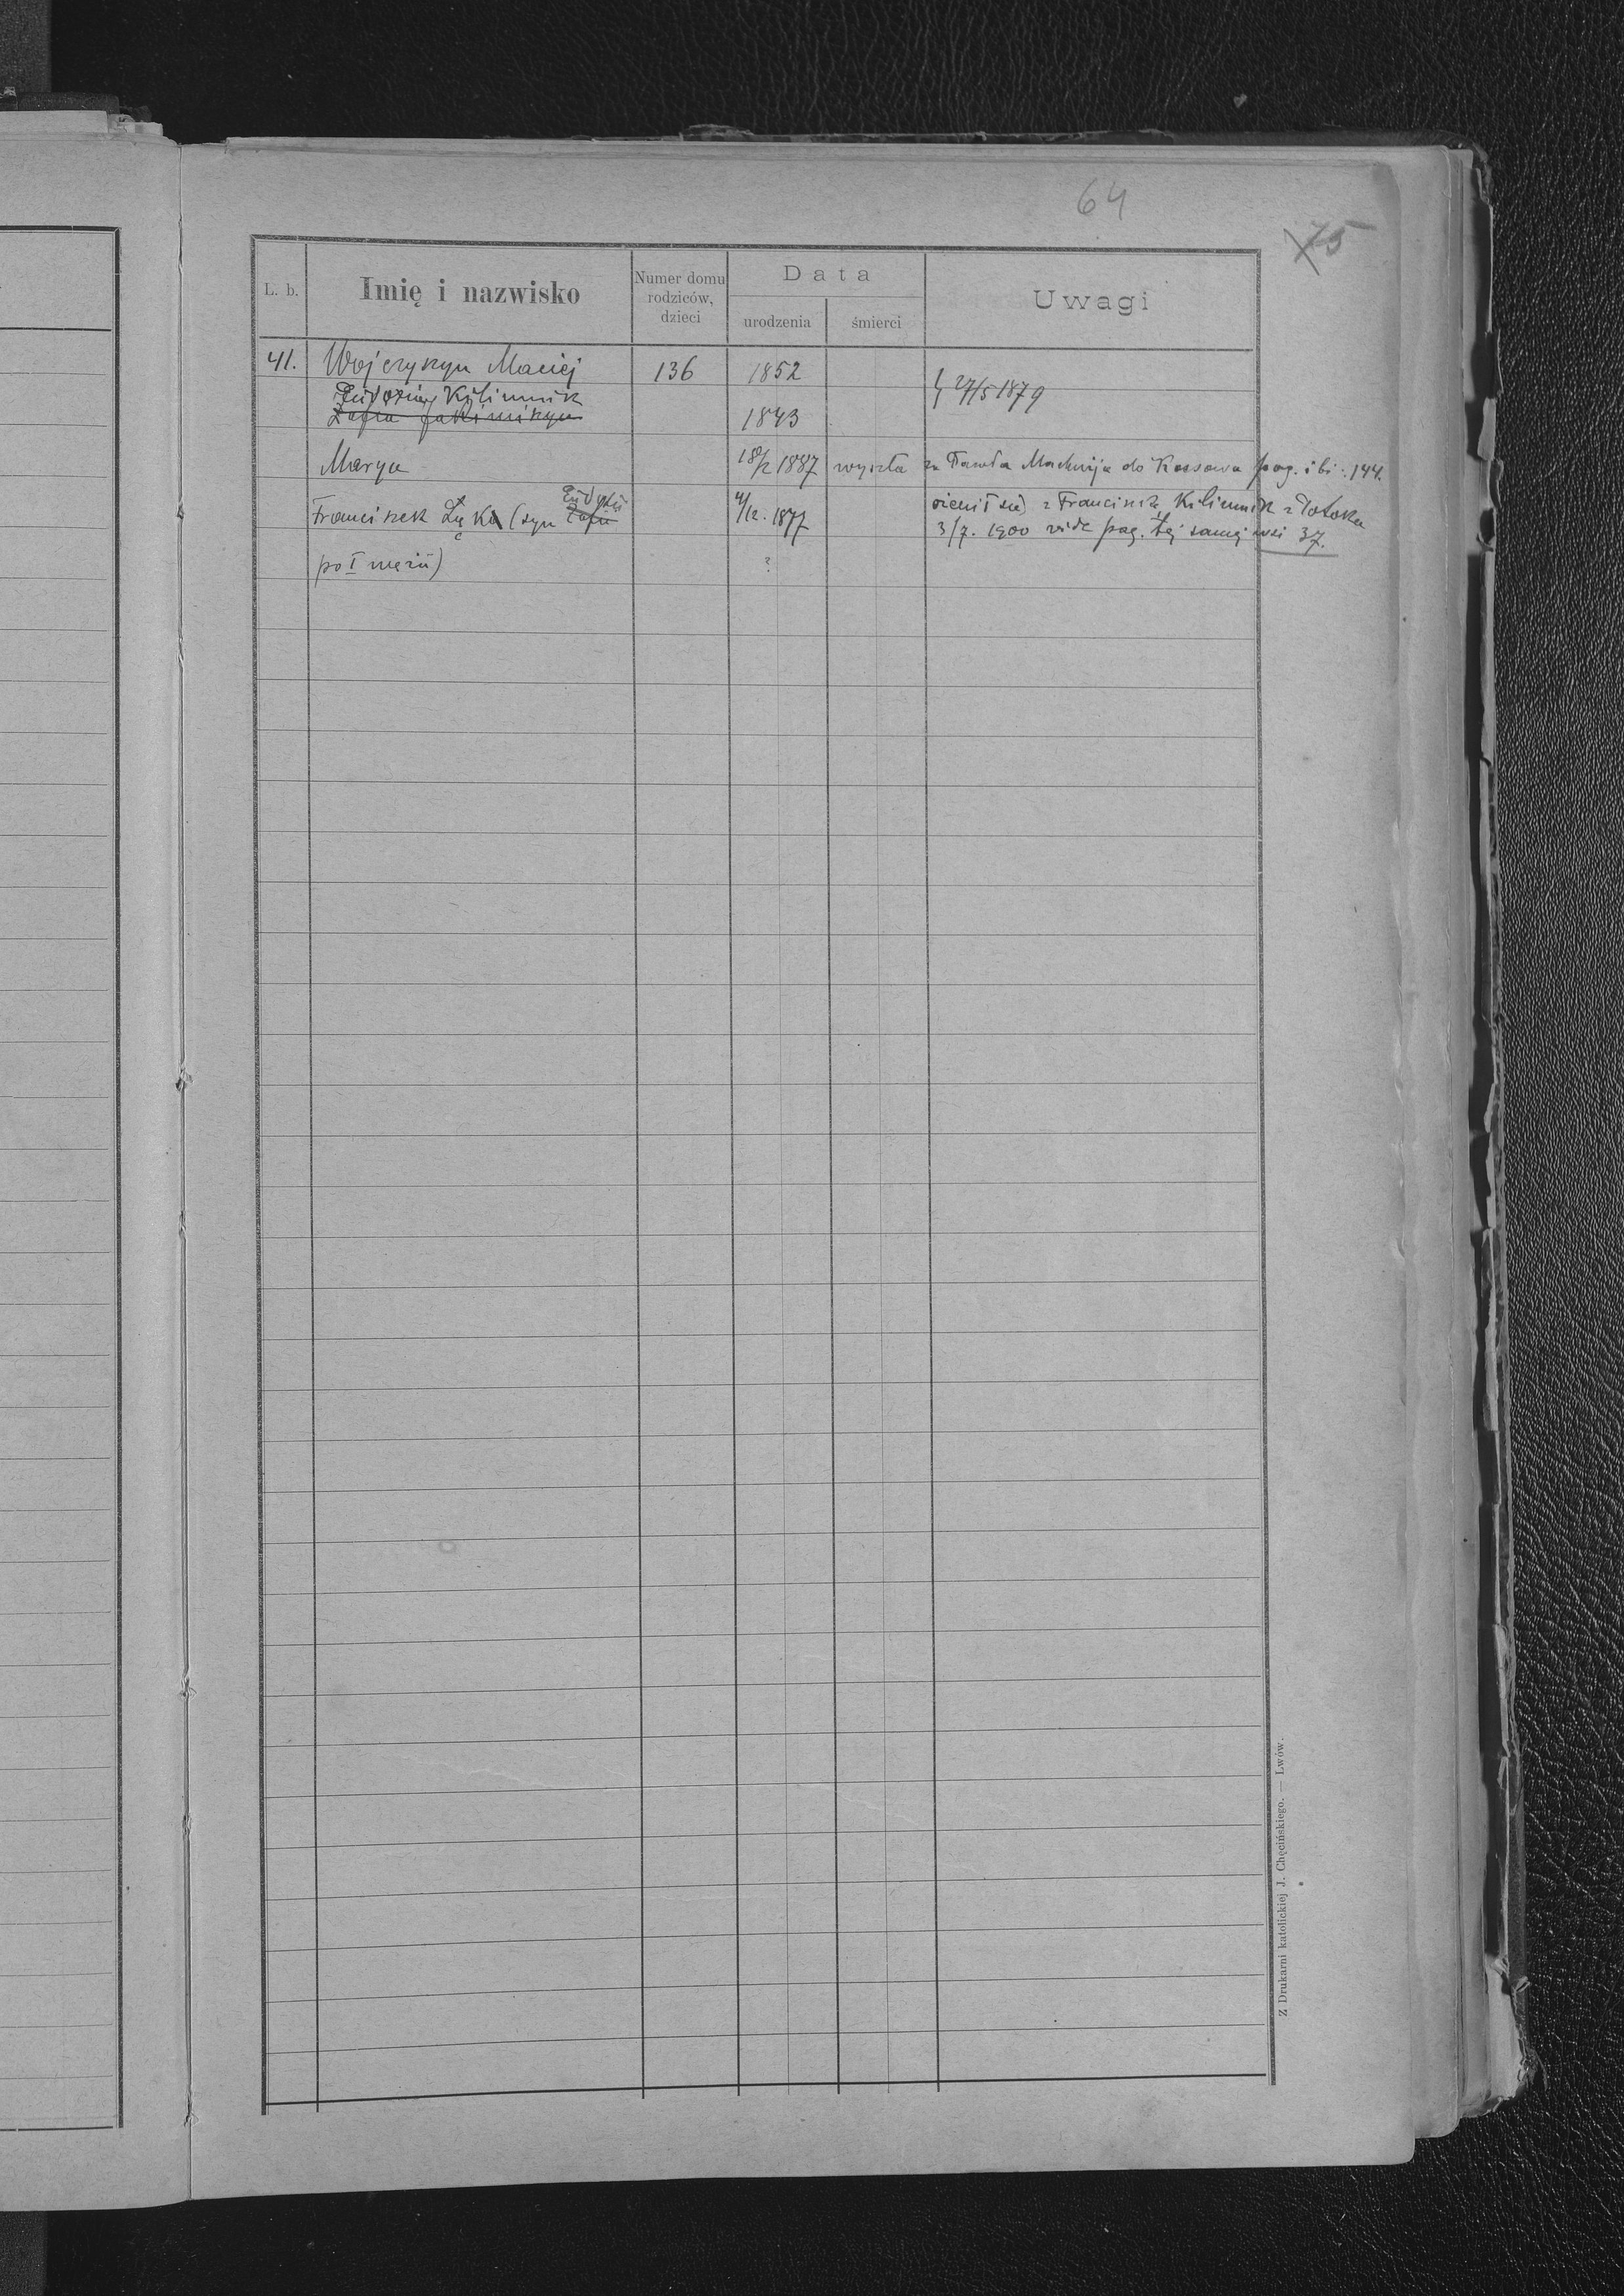 64
75
L. b. Imię i nazwisko Numer domu rodziców, dzieci Data urodzenia śmierci Uwagi
41. Wojczyszyn Maciej 136 1852
Kilimnik ϟ 27/5 1879
Zofia Jakimiszyn 1843
Marya 18/2 1887 wyszła za Pawła Machnija do Kossowa pag. ibi. 144.
Franciszek Łęka (syn Zofii 4/12. 1877 ożenił się z Franciszką Kiliemnik z Potoka
3/7. 1900 vide pag. tej samej wsi 37.
po I mężu) ?
Z Drukarni katolickiej J. Chęcińskiego. — Lwów.